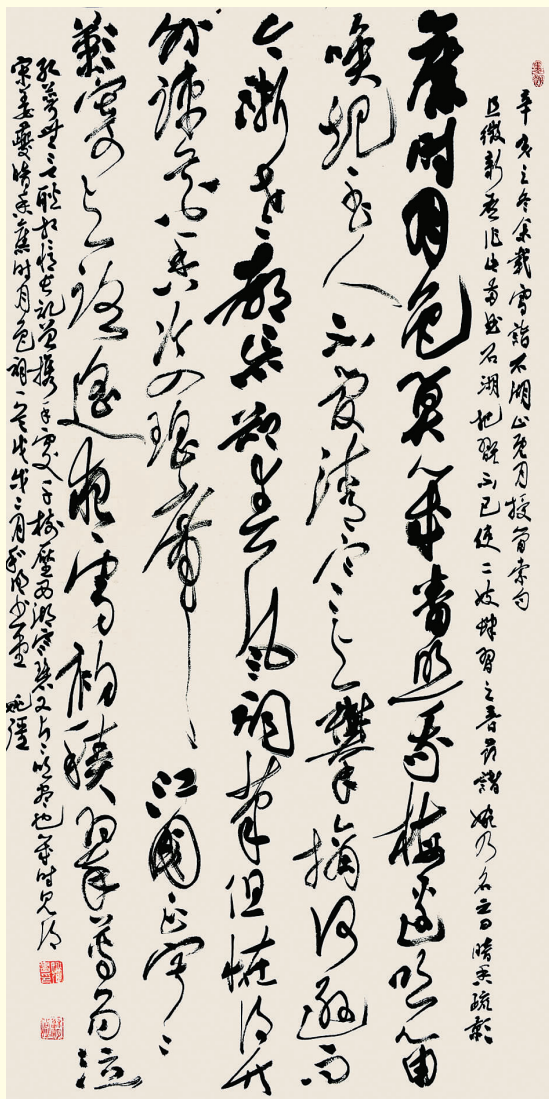 辛亥之冬余載雪詣石湖止既月授簡索句
且徵新聲作此兩曲石湖把翫不已使二妓肄習之音節諧婉乃名之曰暗香疏影
舊時月色算幾番照我梅邊吹笛
喚起玉人不管清寒與攀摘何遜而
今漸老都忘卻春風詞筆但怪得竹
外疏花香冷入瑤席江國正寂寂
歎寄与路遙夜雪初積翠尊易泣
紅萼無言耿相憶長記曾攜手處千樹壓西湖寒碧又片片吹盡也幾時見得
宋姜夔暗香舊時月色詞一首戊戌三月